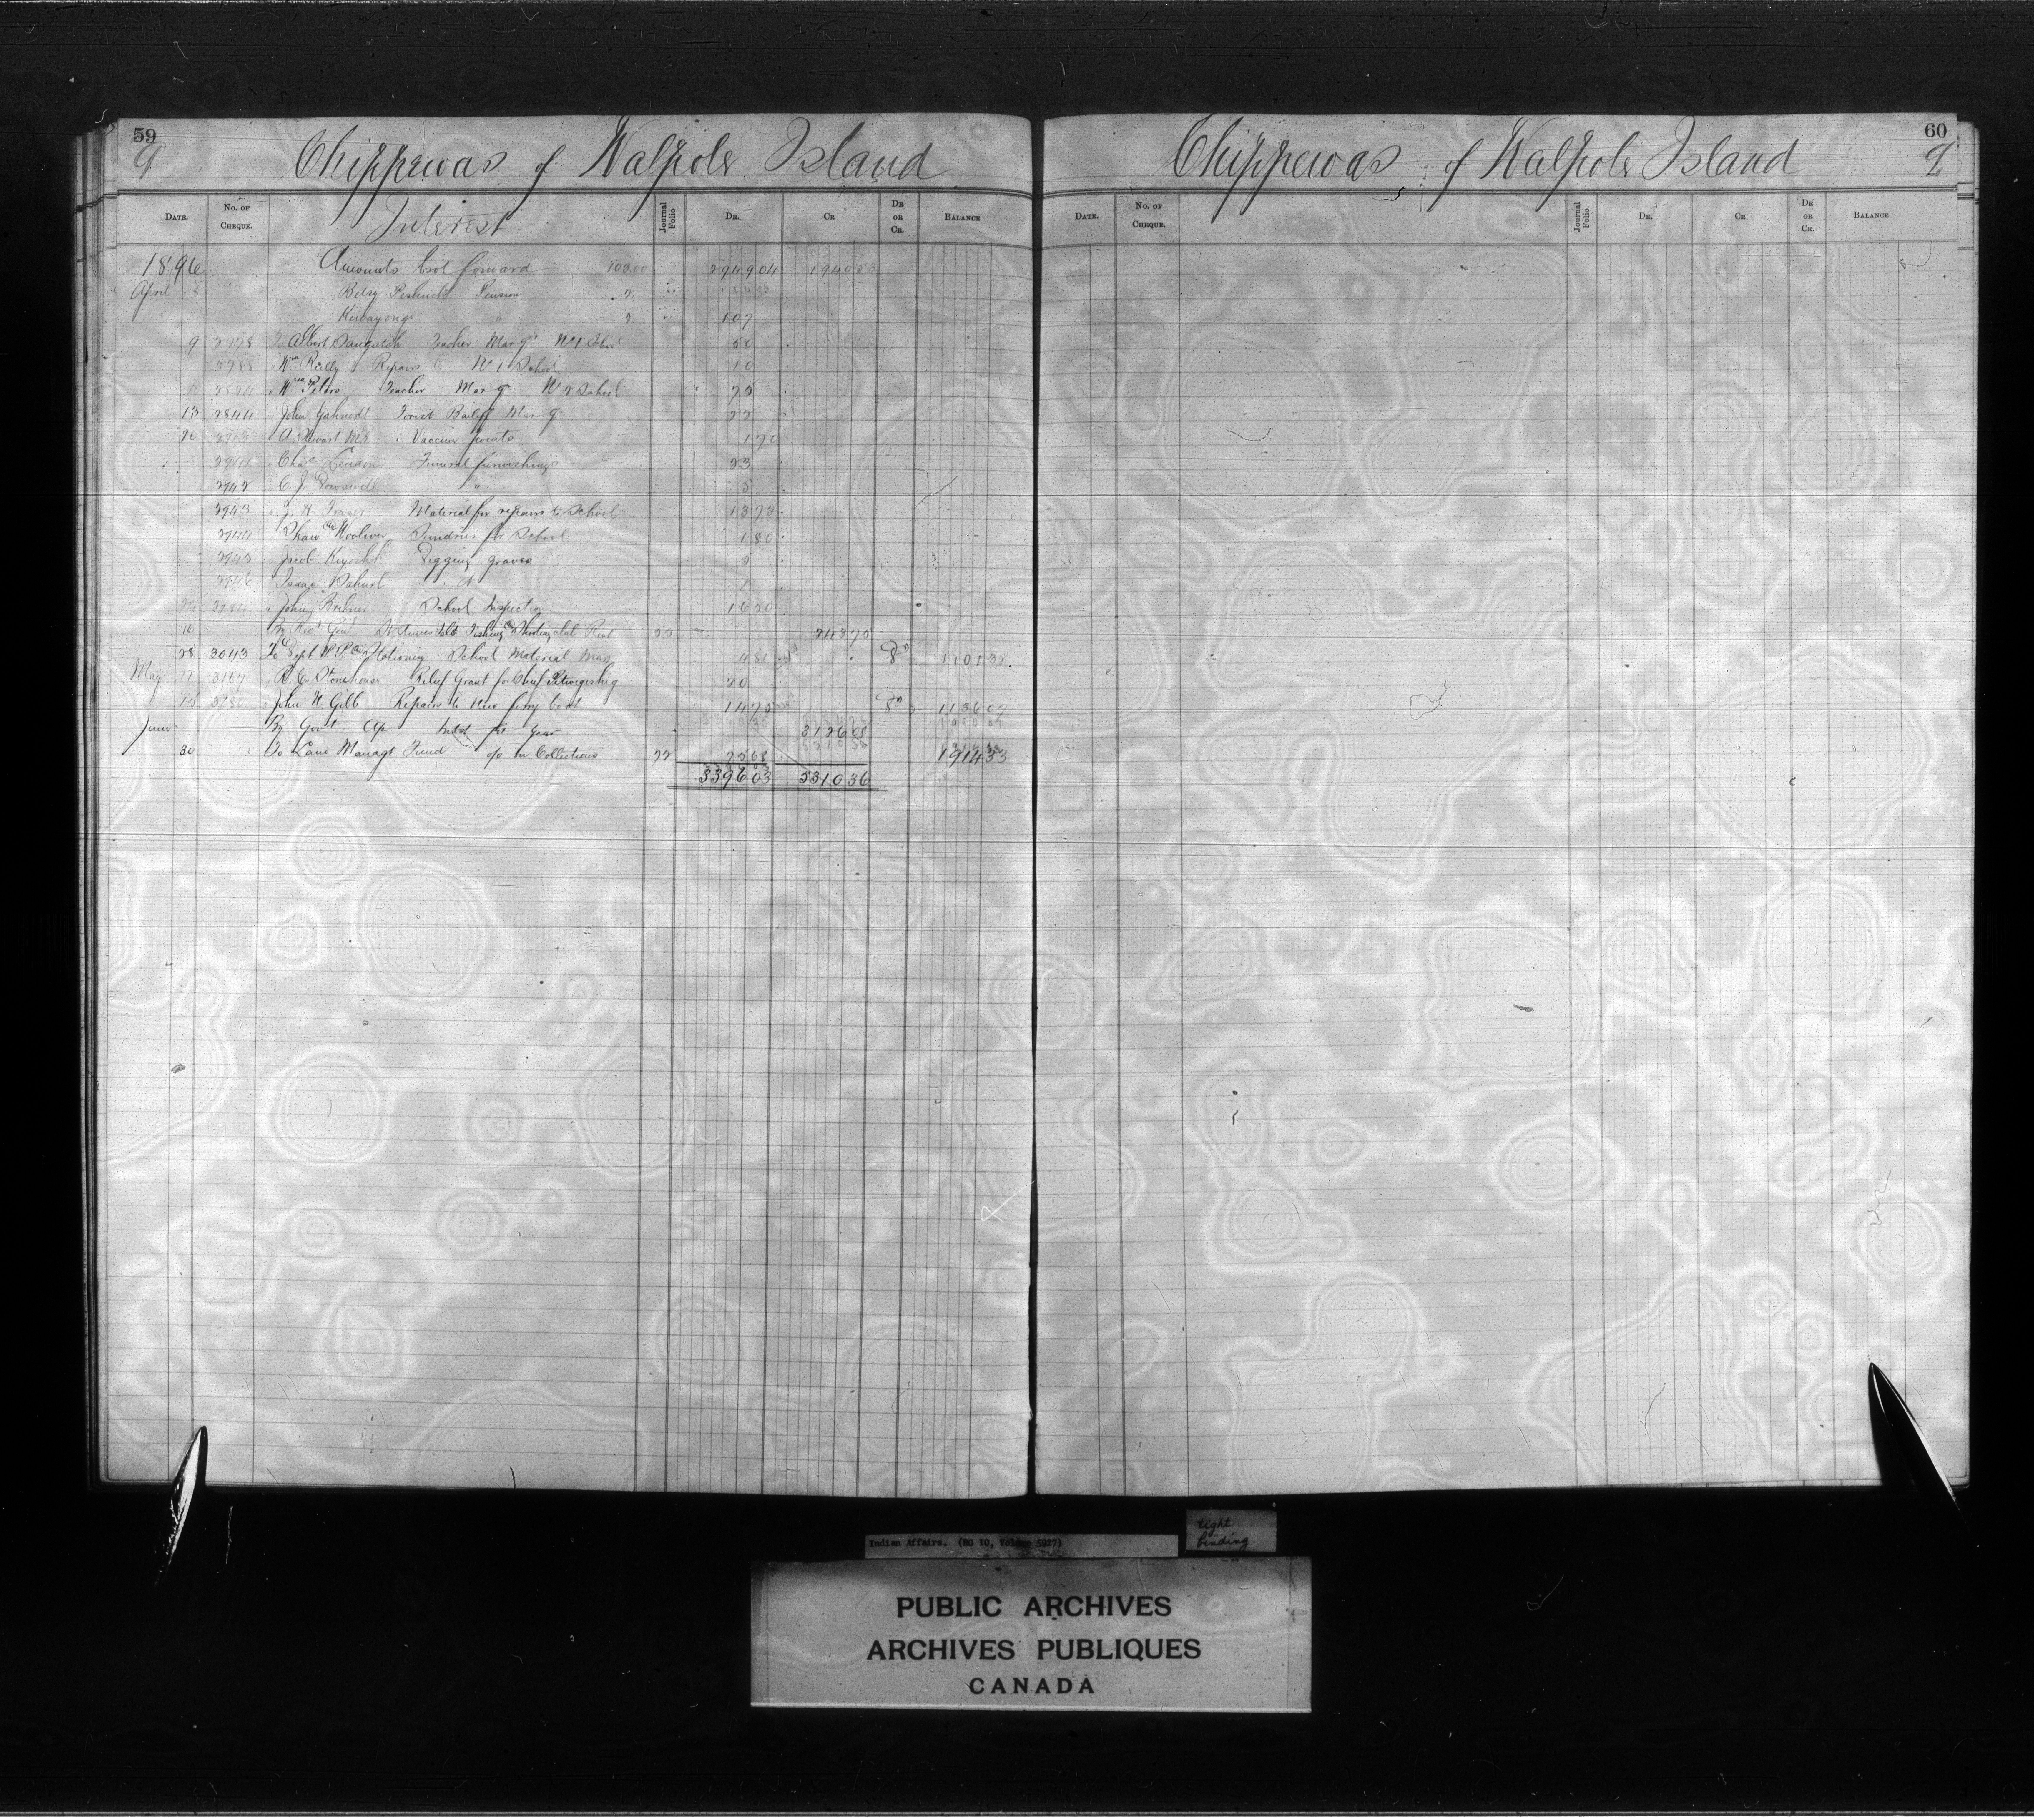 59
9
Chippewas of Walpole Island
DATE. No. OF CHEQUE. Interest Journal Folio DR. CR DR OR CR. BALANCE
1896 Amounts brot forward 100.00 2949.04 1940.53
April Betsy Pension 2
Kewayong " 2 1.07
9 2778 To Albert Teacher Mar qr No 1 School 50
2788 " Wm Reilly Repairs to No 1 School 10
2824 " Wm Peters Teacher Mar qr No 2 School 75
13 2844 " John Forest Bailiff Mar qr 25
20 2913 A. Stewart M.D. Vaccine points 1.70
2941 " Chas Lindon Funeral furnishings 23
2942 " C. J. " 5
2943 " J. H. Fraser Material for repairs to School 13.72
2944 " Shaw & Wooliver Sundries for School 1.80
2945 " Jacob Kiyoshk Digging graves 5
2946 " Isaac " 2
2984 " John Brebner School Inspection 16.50
16 By Recr Genl St Annes Isld Fishing & Shooting club Rent 22 243.75
28 3043 To Dept P. P. & Stationery School Material Mar 4.81 Dr 1101.32
May 11 3167 " R. C. Stonehouse Relief Grant for Chief 20
15 3230 " John W. Gibb Repairs to New ferry boat 14.75 Dr 1136.07
June By Govt a/c Intst for Year 3126.08
30 To Land Managt Fund o/o on Collections 22 25.68 1914.33
3396.03 5310.36
60
9
Chippewas of Walpole Island
DATE. No. OF CHEQUE. Journal Folio DR. CR DR OR CR. BALANCE
Indian Affairs. (RG 10, Volume 5927)
tight
binding
PUBLIC ARCHIVES
ARCHIVES PUBLIQUES
CANADA